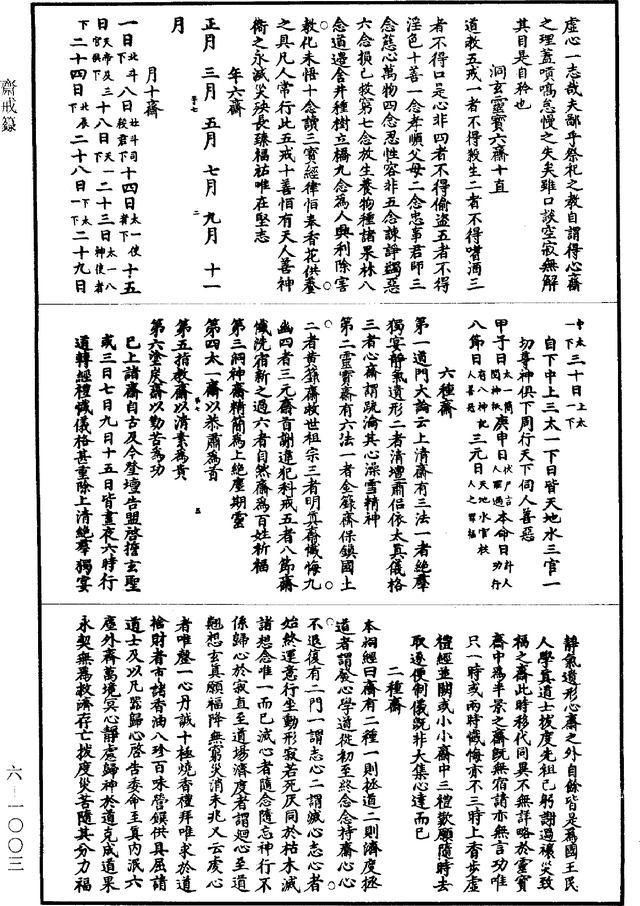 虛心一志哉夫鄙乎祭祀之教自謂得心齋
之理蓋嘖嗃怠慢之失矣雖口談空寂無解
其目是自矜也
洞玄靈寶六齋十直
道教五戒一者不得殺生二者不得嗜酒三
者不得口是心非四者不得偷盗五者不得
淫色十善一念孝順父母二念忠事君師三
念慈心萬物四念忍性容非五念諫諍蠲惡
六念損己救窮七念放生養物種諸果林八
念道邊舍井種樹立橋九念為人興利除害
教化未悟十念讀三寶經律恒奉香花供養
之具凡人常行此五戒十善恒有天人善神
衛之永滅災殃長臻福祐唯在堅志
年六齋
正月 三月 五月 七月 九月 十一
月
月十齋
一日北斗下八日北斗司殺君下十四日太一使者下十五
日天帝及三官俱下十八日天一下二十三日太一八神使者
下二十四日北辰下二十八日下太一下二十九日
中太一下三十日上太一下
自下中上三太一下日皆天地水三官一
切尊神俱下周行天下伺人善惡
甲子日太一簡閱神祇庚申日伏尸言人罪過本命日計人功行
八節日有八神記人善惡三元日天地水官校人之罪福
六種齋
第一道門大論云上清齋有三法一者絶羣
獨宴靜氣遺形二者清壇肅侣依太真儀格
三者心齋謂疏瀹其心澡雪精神
第二靈寶齋有六法一者金籙齋保鎮國土
二者黄籙齋救世祖宗三者明真齋懺悔九
幽四者三元齋首謝違犯科戒五者八節齋
懺洗宿新之過六者自然齋為百姓祈福
第三洞神齋精簡為上絶塵期靈
第四太一齋以恭肅為首
第五指教齋以清素為貴
第六塗炭齋以勤苦為功
已上諸齋自古及今登壇告盟啓誓玄聖
或三日七日九日十五日皆晝夜六時行
道轉經禮懺儀格甚重除上清絶羣獨宴
靜氣遺形心齋之外自餘皆是為國王民
人學真道士拔度先祖已躬謝過禳災致
福之齋此時移代同異不無詳略於靈寶
齋中為半景之齋既無宿請亦無言功唯
只一時或兩時懺悔亦不三時上香步虛
禮經並闕或小小齋中三禮歎願隨時去
取逐便制儀既非大集心達而已
二種齋
本洞經曰齋有二種一則極道二則濟度極
道者謂發心學道從初至終念念持齋心心
不退復有二門一謂志心二謂滅心志心者
始終運意行坐動形寂若死灰同於枯木滅
諸想念唯一而已滅心者隨念隨忘神行不
係歸心於寂直至道場濟度者謂迴心至道
翹想玄真願福降無窮災消未兆又云虔心
者唯罄一心丹誠十極燒香種拜唯求於道
捨財者市諸香油八珍百味營饌供具屈請
道士及以凡器歸心啓告委命至真内派六
塵外齋萬境冥心靜慮歸神於道克成道果
永契無為救濟存亡拔度災苦隨其分力福
齋戒籙
六—一〇〇三